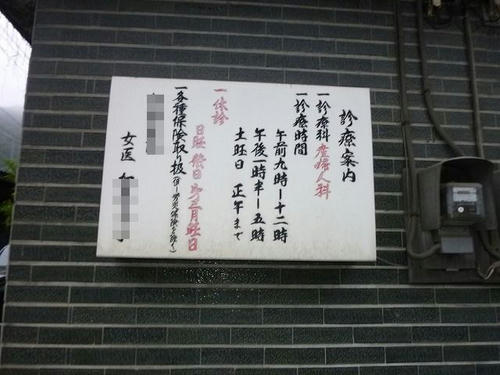 診療案内
一診療科産婦人科
一診療時間
午前九時ー十二時
午後一時半ー五時
土旺日 正午まで
一休診
日旺 祭日 第三月旺日
一各種保険取り扱
女医